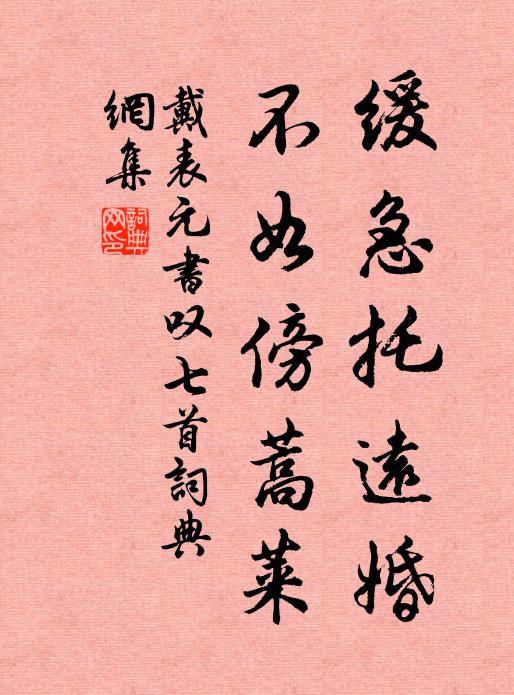 緩急托遠婚
不如傍蒿萊
戴表元書叹七首詞典
網集
詞典網印